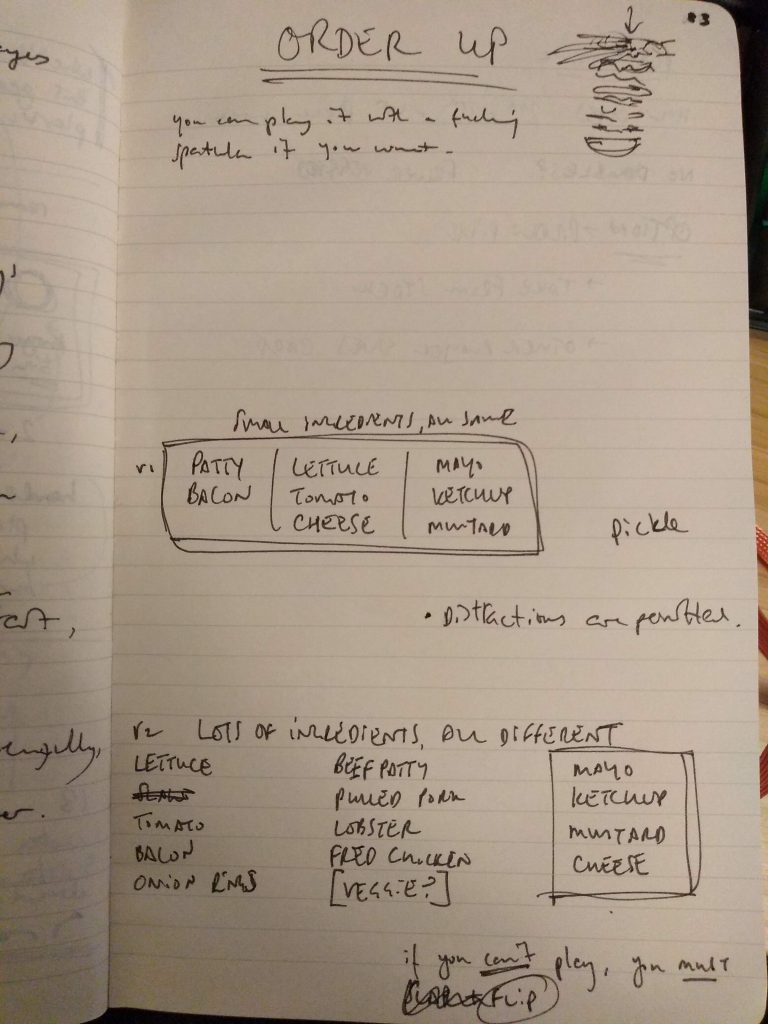 #3
ORDER UP
you can play it with a fucking
spatula if you want.
SMALL INGREDIENTS, ALL SAME
V1
PATTY LETTUCE MAYO
BACON TOMATO KETCHUP
CHEESE MUSTARD
pickle
• Distractions are permitted.
V2 LOTS OF INGREDIENTS, ALL DIFFERENT
LETTUCE BEEF PATTY MAYO
PULLED PORK KETCHUP
TOMATO LOBSTER MUSTARD
BACON FRED CHICKEN CHEESE
ONION RINGS [VEGGIE?]
if you can't play, you must
FLIP